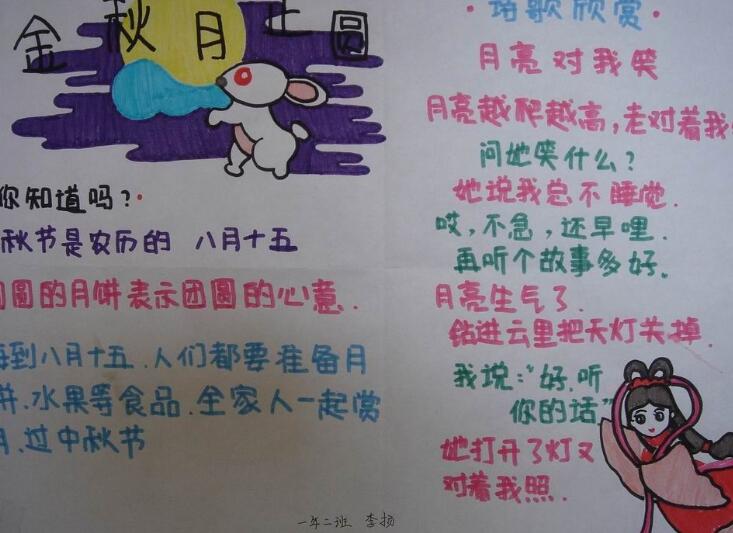 金秋月上圆
你知道吗?
秋节是农历的 八月十五
圆的月饼表示团圆的心意.
每到八月十五.人们都要准备月
饼.水果等食品.全家人一起赏
月.过中秋节
·诗歌欣赏·
月亮对我笑
月亮越爬越高,老对着我
问她笑什么?
她说我总不睡觉.
哎,不急,还早哩.
再听个故事多好.
月亮生气了.
钻进云里把天灯关掉.
我说:“好.听
你的话”
她打开了灯又
对着我照.
一年二班 李扬